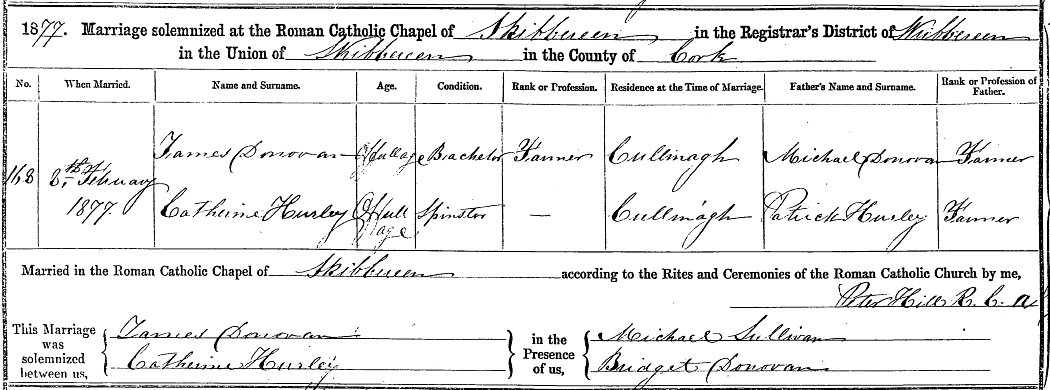 1877. Marriage solemnized at the Roman Catholic Chapel of Skibbereen in the Registrar's District of Skibbereen
in the Union of Skibbereen in the County of Cork
No. When Married. Name and Surname. Age. Condition. Rank or Profession. Residence at the Time of Marriage. Father's Name and Surname. Rank or Profession of Father.
James Donovan Full age Bachelor Farmer Cullinagh Michael Donovan Farmer
168 8th February
1877. Catherine Hurley Full age Spinster — Cullinagh Patrick Hurley Farmer
Married in the Roman Catholic Chapel of Skibbereen according to the Rites and Ceremonies of the Roman Catholic Church by me,
Peter Hill R. C. A
This Marriage was solemnized between us, James Donovan
Catherine Hurley
in the Presence of us, Michael Sullivan
Bridget Donovan